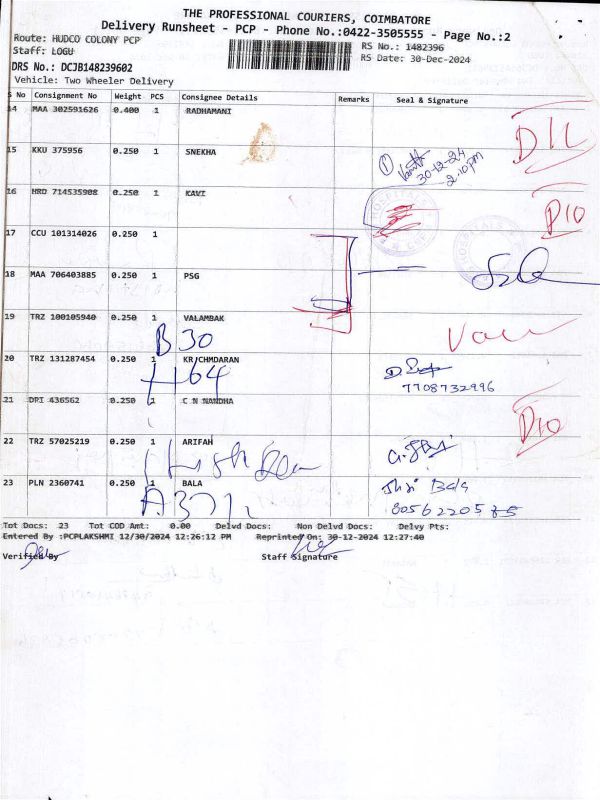 THE PROFESSIONAL COURIERS, COIMBATORE
Delivery Runsheet - PCP - Phone No.:0422-3505555 - Page No.:2
Route: HUDCO COLONY PCP RS No.: 1482396
Staff: LOGU RS Date: 30-Dec-2024
DRS No.: DCJB148239602
Vehicle: Two Wheeler Delivery
S No Consignment No Weight PCS Consignee Details Remarks Seal & Signature
14 MAA 302591626 0.400 1 RADHAMANI
15 KKU 375956 0.250 1 SNEKHA
30-12-24
2.10pm
16 HRD 714535908 0.250 1 KAVI
17 CCU 101314026 0.250 1
18 MAA 706403885 0.250 1 PSG
19 TRZ 100105940 0.250 1 VALAMBAK
B 30
20 TRZ 131287454 0.250 1 KR/CHMDARAN
H64
7708732996
21 DPI 436562 0.250 1 C N NANDHA
22 TRZ 57025219 0.250 1 ARIFAH
23 PLN 2360741 0.250 1 BALA
Tot Docs: 23 Tot COD Amt: 0.00 Delvd Docs: Non Delvd Docs: Delvy Pts:
Entered By :PCPLAKSHMI 12/30/2024 12:26:12 PM Reprinted On: 30-12-2024 12:27:40
Verified By Staff Signature